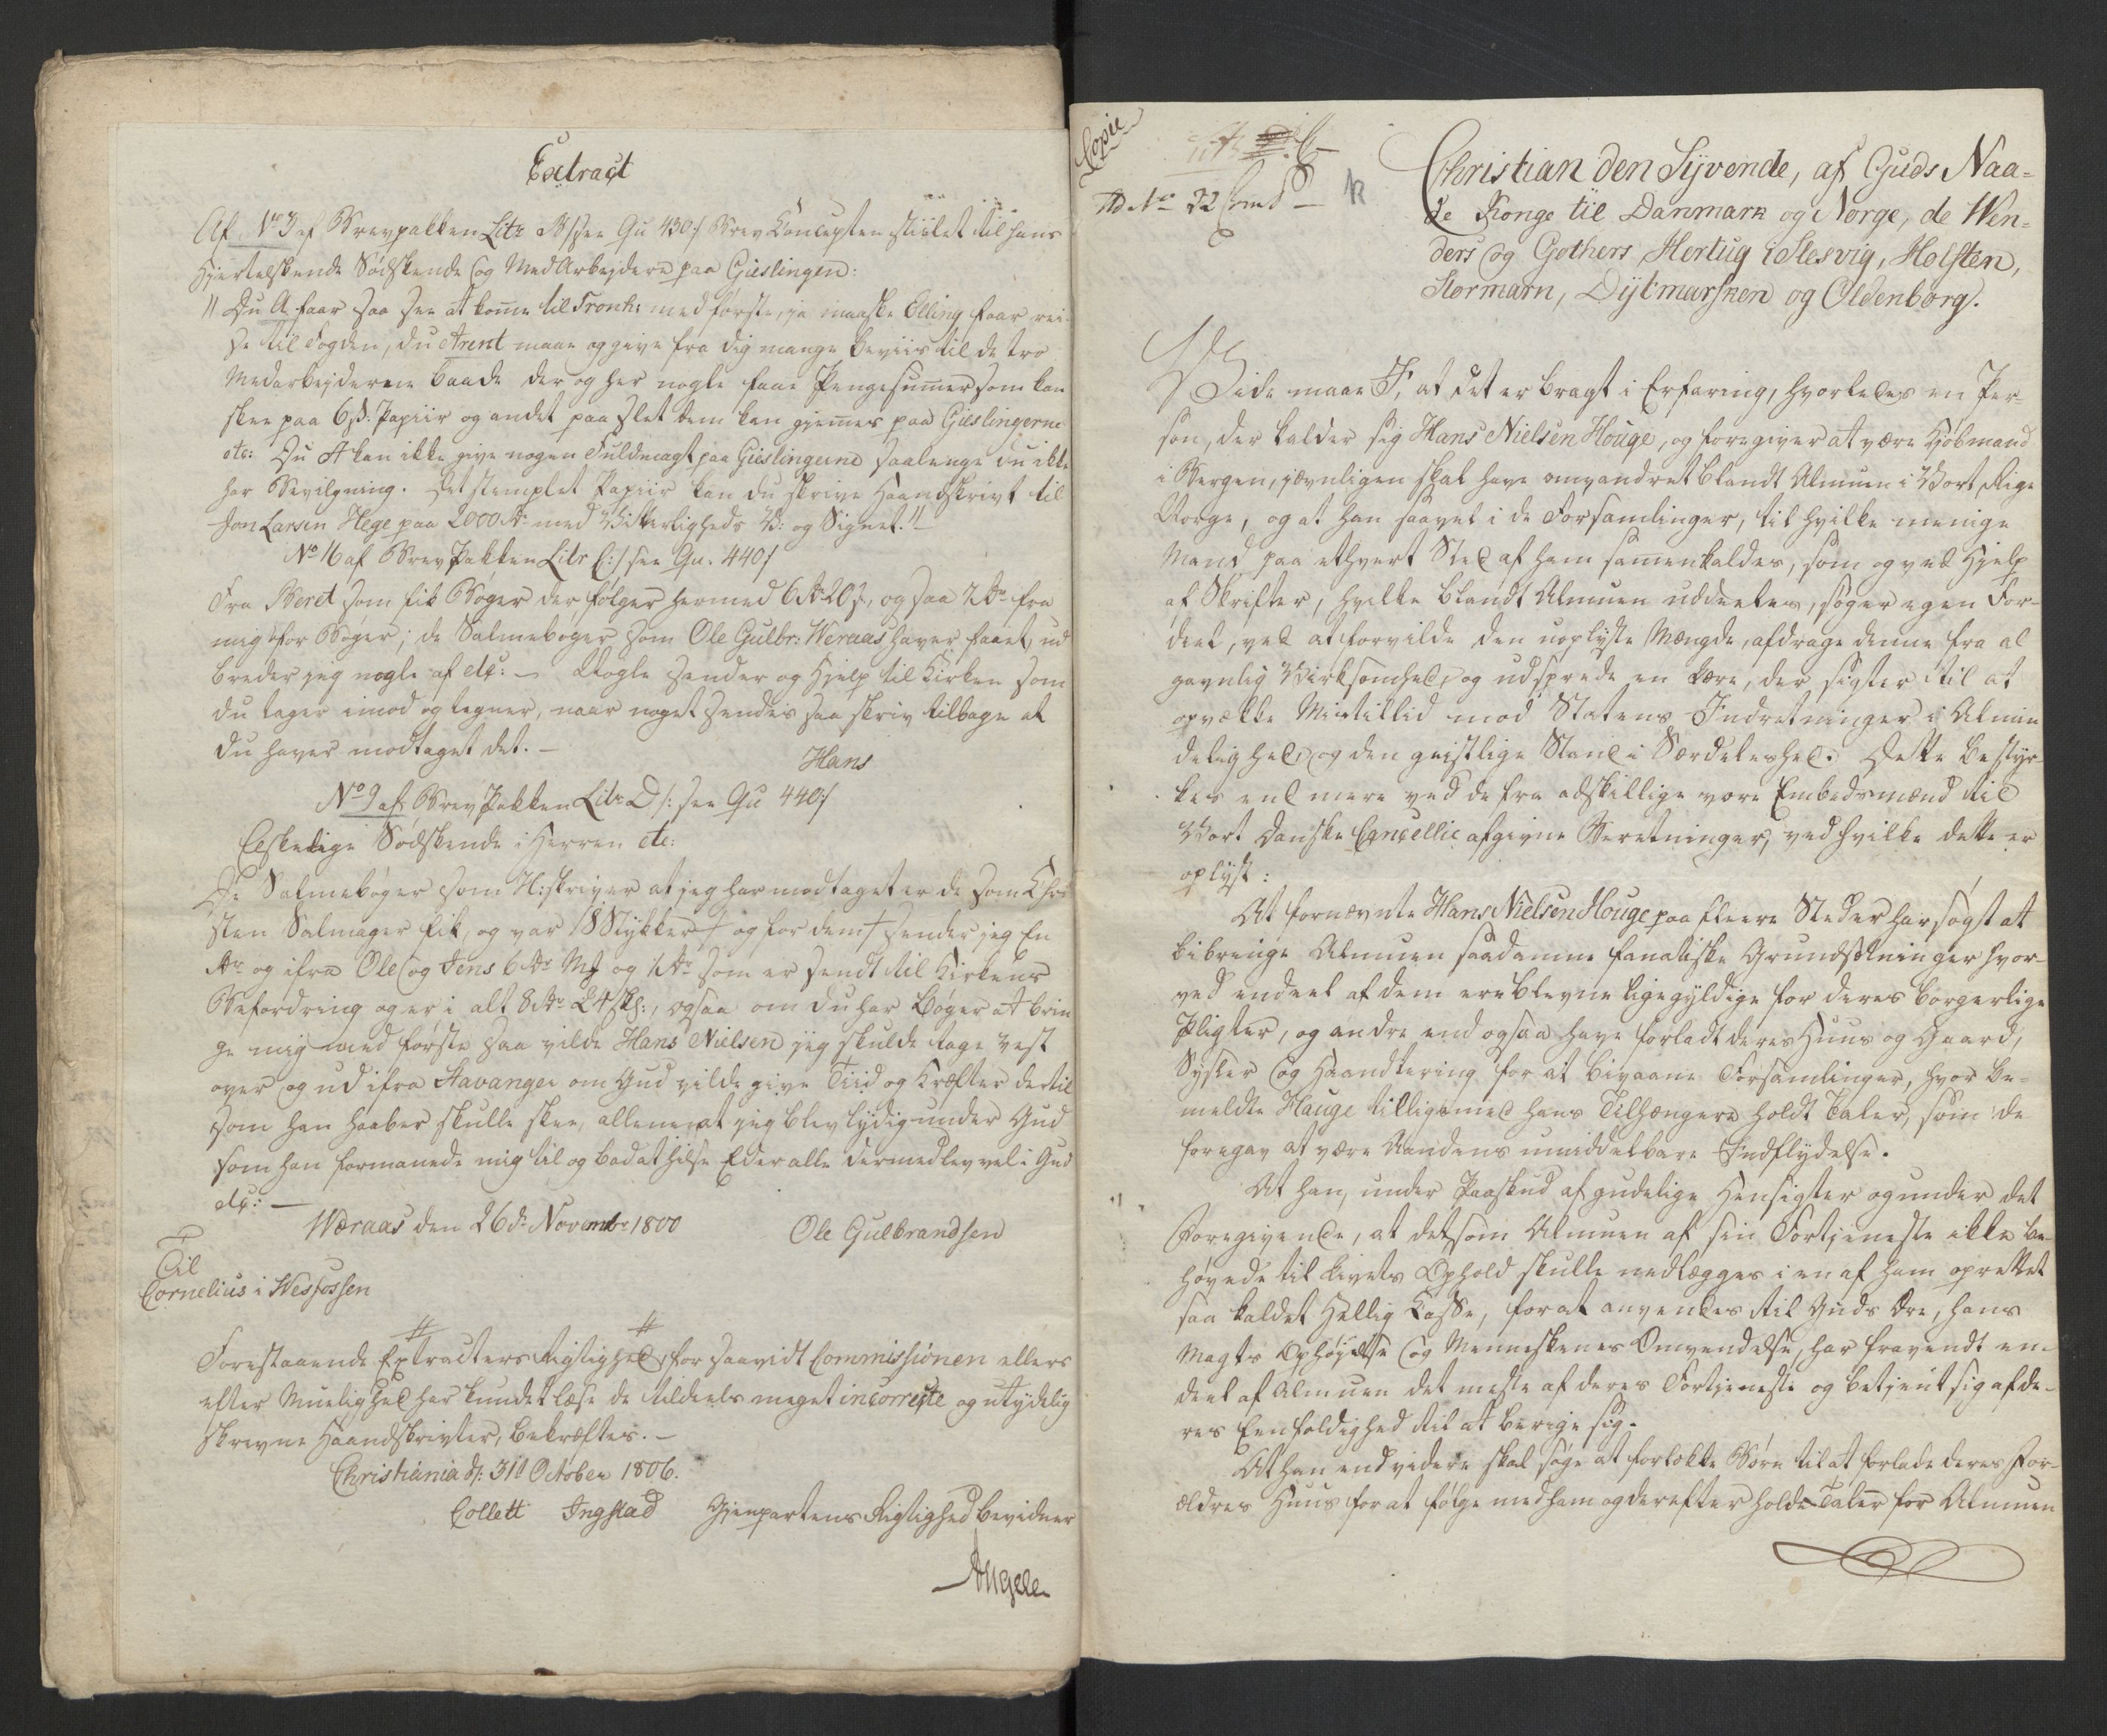 Extract
Af No 3 af Brevpakken Litr B /: see Qu 430 :/ Brev Koncepten stiilet til hans
Hjertelskende Sødskende og Med Arbejdere paa Gieslingen:
" Du A. faar saa see at kome til Tronh: med første, ja maaske Elling faar rei-
se til Fogden, du Arent maae og give fra dig mange beviis til de tro
Medarbejderne baade der og her nogle faae Pengesumer som kan
skee paa 6 ß. Papiir og andet paa slet dem kan gjemes paa Gieslingerne
etc: Du A kan ikke give nogen Fuldmagt paa Gieslingerne saalenge du ikke
har Bevilgning. Det stemplet Papiir kan du skrive Haandskrivt til
Jon Larsen Hege paa 2000 rdr med Vitterligheds V: og Signet."
No 16 af Brev Pakken Litr C: /: see Qu. 440 :/
Fra Beret som fik Bøger der følger hermed 6 rdr 20 s, og saa 2 rdr fra
mig for Bøger; de Salmebøger som Ole Gulbr: Weraas haver faaet, ud
breder jeg nogle af etc: — Nogle sender og Hjelp til Kirken som
du tager imod og tegner, naar noget sendes saa skriv tilbage at
du haver modtaget det. —
Hans
No 9 af Brev Pakken Litr D /: see Qu 440 :/
Elskelige Sødskende i Herren etc:
De Salmebøger som H: skriver at jeg har modtaget er de som Chri
sten Salmager fik, og var 18 Stykker og for dem sender jeg En
rdr og ifra Ole og Jens 6 rdr og 1 rdr som er sendt til Kirkens
Befordring og er i alt 8 rdr 24 sk:, ogsaa om du har Bøger at brin
ge mig med første saa vilde Hans Nielsen jeg skulde tage vest
over og ud ifra Stavanger om Gud vilde give Tiid og Kræfter dertil
som han haaber skulle skee, allene at jeg blev lydig under Gud
som han formanede mig til og bad at hilse Eder alle dermed lev vel i Gud
etc: —
Weraas den 26de Novembr 1800
Ole Gulbrandsen
Til
Cornelius i Wesfossen
Forestaaende Extracters Rigtighed, for saavidt Commissionen ellers
efter Muelighed har kundet læse de tildeels meget incorrecte og utydelig
skrevne Haandskrivter, bekræftes. —
Christiania d: 31 October 1806.
Collett Ingstad Gjenpartens Rigtighed bevidner
Angell
Copie
Ad No 32
Christian den Syvende, af Guds Naa-
de Konge til Danmark og Norge, de Wen-
ders og Gothers, Hertug i Slesvig, Holsten,
Stormarn, Dytmarsken og Oldenborg.
Vide maae I, at det er bragt i Erfaring, hvorledes en Per-
son, der kalder sig Hans Nielsen Houge, og foregiver at være Kjøbmand
i Bergen, jævnligen skal have omvandret blandt Almuen i Vort Rige
Norge, og at han saavel i de Forsamlinger, til hvilke menige
Mand paa ethvert Sted af ham samenkaldes, som og ved Hjelp
af Skrifter, hvilke blandt Almuen uddeeles, søger egen For-
deel, ved at forvilde den uoplyste Mængde, afdrage denne fra al
gavnlig Virksomhed, og udsprede en Lære, der sigter til at
opvække Mistillid mod Statens Indretninger i Almin
delighed, og den geistlige Stand i Særdeleshed. Dette bestyr-
kes end mere ved de fra adskillige vore Embedsmænd til
Vort Danske Cancellie afgivne Beretninger, ved hvilke dette er
oplyst:
At fornævnte Hans Nielsen Houge paa fleere Steder har søgt at
bibringe Almuen saadanne fanatiske Grundsætninger hvor-
ved endeel af dem ere blevne ligegyldige for deres borgerlige
Pligter, og andre end ogsaa have forladt deres Huus og Gaard,
Sysler og Haandtering for at bivaane Forsamlinger, hvor be-
meldte Hauge tilligemed hans Tilhængere holdt Taler, som de
foregav at være Aandens umiddelbare Indflydelse.
At han, under Paaskud af gudelige Hensigter og under det
Foregivende, at det som Almuen af sin Fortjeneste ikke be-
høvede til Livets Ophold skulle nedlægges i en af ham oprettet
saa kaldet Hellig Kasse, for at anvendes til Guds Ære, hans
Magts Ophøjelse og Menneskenes Omvendelse, har fravendt en-
deel af Almuen det meste af deres Fortjeneste og betjent sig af de-
res Eenfoldighed til at berige sig.
At han endvidere skal søge at forlokke Børn til at forlade deres For-
ældres Huus for at følge med ham og derefter holde Taler for Almuen